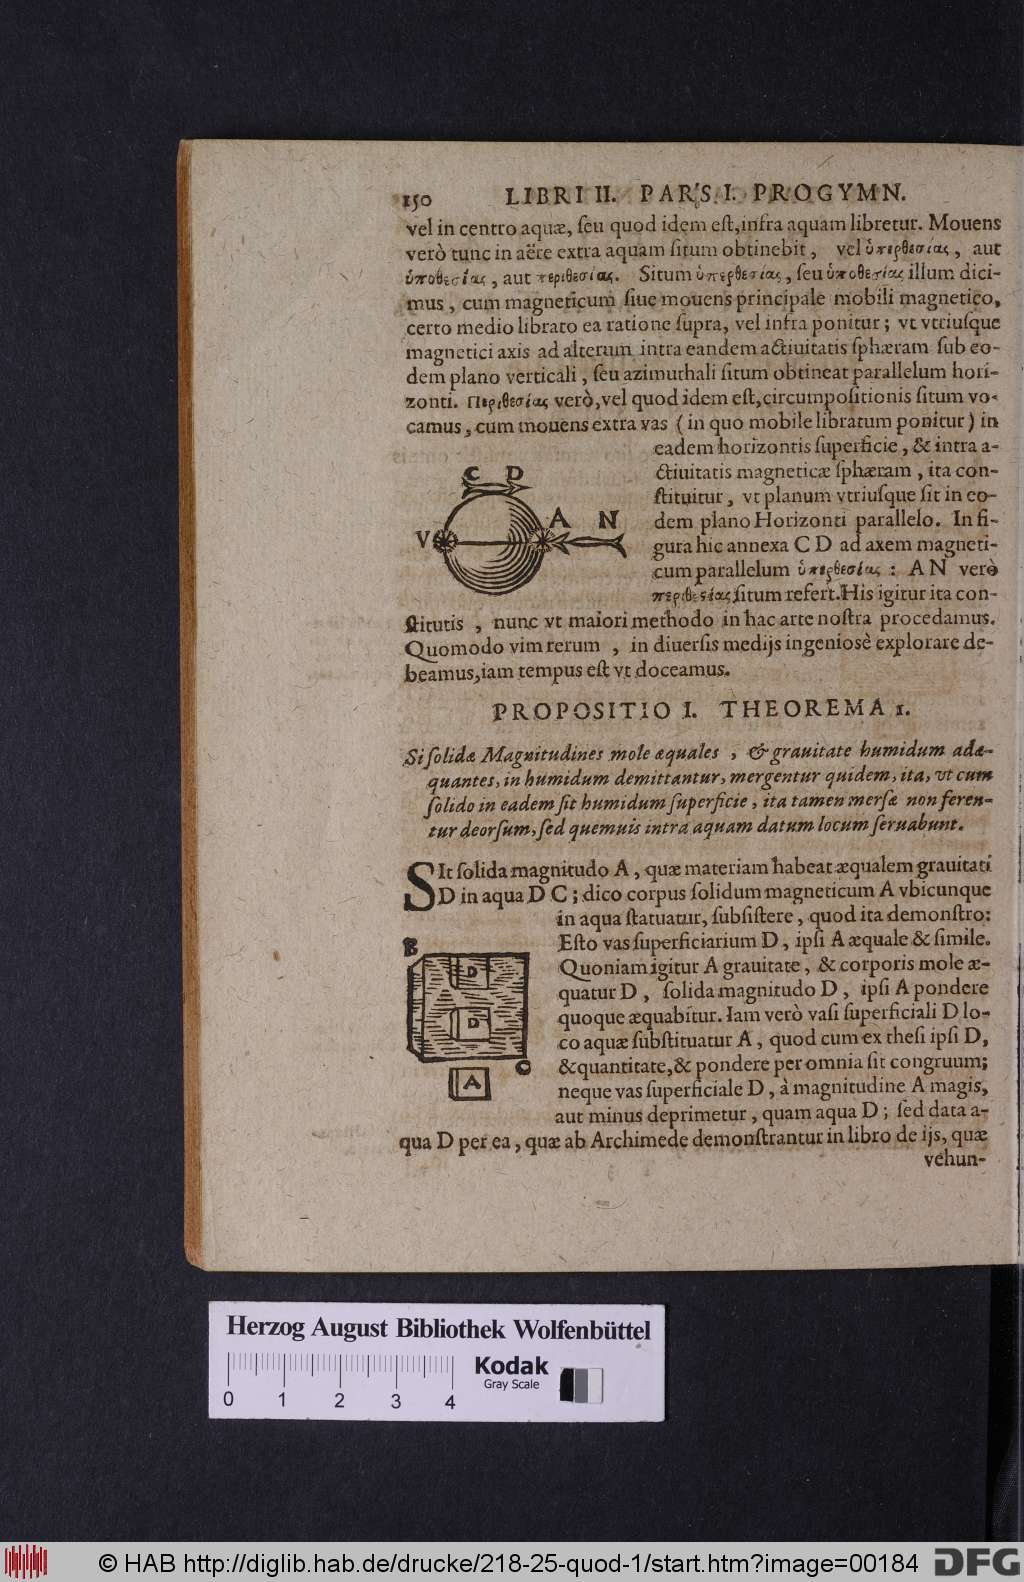 150 LIBRI II. PARS. I. PROGYMN.
vel in centro aquæ, ſeu quod idem eſt, infra aquam libretur. Mouens
verò tunc in aëre extra aquam ſitum obtinebit, vel ὑπερθεσίας, aut
ὑποθεσίας, aut περιθεσίας. Situm ὑπερθεσίας, ſeu ὑποθεσίας illum dici-
mus, cum magneticum ſiue mouens principale mobili magnetico,
certo medio librato ea ratione ſupra, vel infra ponitur; vt vtriuſque
magnetici axis ad alterum intra eandem actiuitatis ſphæram ſub eo-
dem plano verticali, ſeu azimuthali ſitum obtineat parallelum hori-
zonti. Περιθεσίας verò, vel quod idem eſt, circumpoſitionis ſitum vo-
camus, cum mouens extra vas (in quo mobile libratum ponitur) in
eadem horizontis ſuperficie, & intra a-
ctiuitatis magneticæ ſphæram, ita con-
ſtituitur, vt planum vtriuſque ſit in eo-
dem plano Horizonti parallelo. In fi-
gura hic annexa C D ad axem magneti-
cum parallelum ὑπερθεσίας: A N verò
περιθεσίας ſitum refert. His igitur ita con-
C D
V A N
ſtitutis, nunc vt maiori methodo in hac arte noſtra procedamus.
Quomodo vim rerum, in diuerſis medijs ingenioſè explorare de-
beamus, iam tempus eſt vt doceamus.
PROPOSITIO I. THEOREMA 1.
Si ſolidæ Magnitudines mole æquales, & grauitate humidum adæ-
quantes, in humidum demittantur, mergentur quidem, ita, vt cum
ſolido in eadem ſit humidum ſuperficie, ita tamen merſæ non feren-
tur deorſum, ſed quemuis intra aquam datum locum ſeruabunt.
SIt ſolida magnitudo A, quæ materiam habeat æqualem grauitati
D in aqua D C; dico corpus ſolidum magneticum A vbicunque
in aqua ſtatuatur, ſubſiſtere, quod ita demonſtro:
Eſto vas ſuperficiarium D, ipſi A æquale & ſimile.
Quoniam igitur A grauitate, & corporis mole æ-
quatur D, ſolida magnitudo D, ipſi A pondere
quoque æquabitur. Iam verò vaſi ſuperficiali D lo-
co aquæ ſubſtituatur A, quod cum ex theſi ipſi D,
& quantitate, & pondere per omnia ſit congruum;
neque vas ſuperficiale D, à magnitudine A magis,
aut minus deprimetur, quam aqua D; ſed data a-
B
D
D
C
A
qua D per ea, quæ ab Archimede demonſtrantur in libro de ijs, quæ
vehun-
Herzog August Bibliothek Wolfenbüttel
Kodak
Gray Scale
0 1 2 3 4
© HAB http://diglib.hab.de/drucke/218-25-quod-1/start.htm?image=00184
DFG